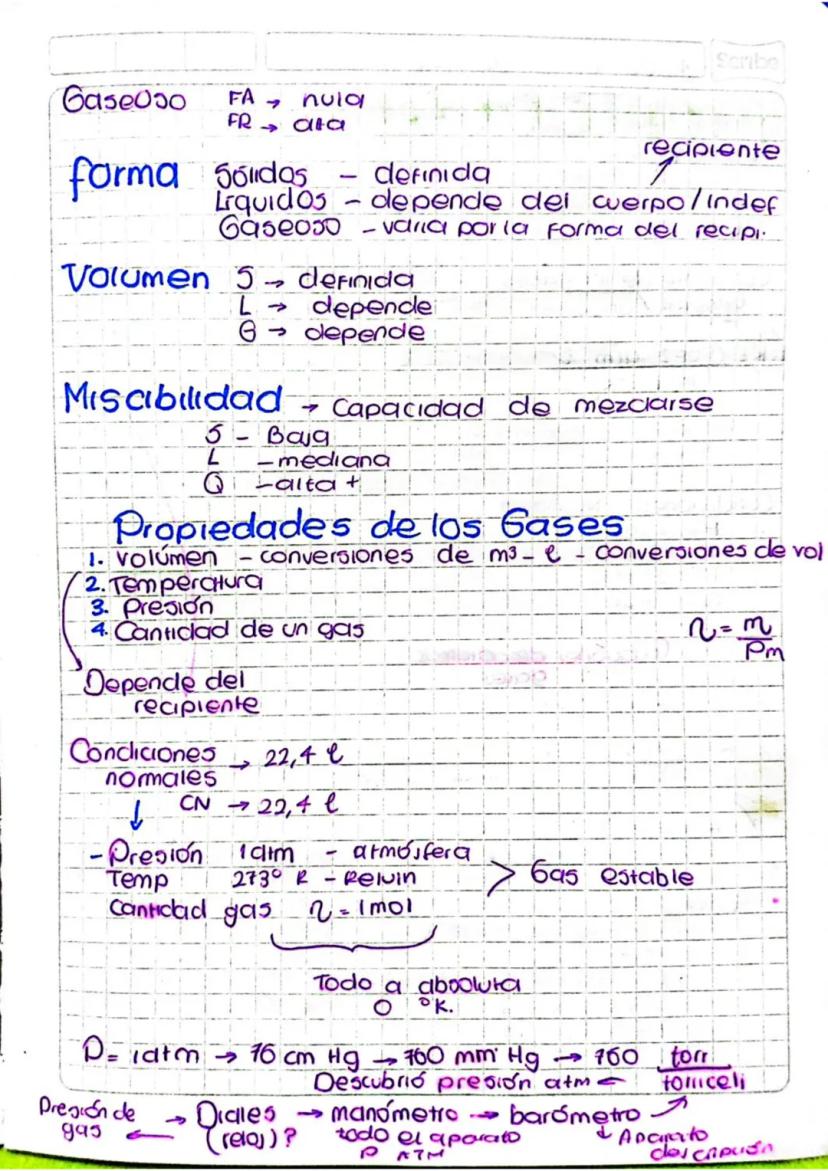 Scribe
Gaseoso FA → nula
FR → alta
recipiente
forma Sólidos - definida
Líquidos - depende del cuerpo/indef
Gaseoso - varia por la forma del recipi.
Volumen S → definida
L → depende
G → depende
Miscibilidad → Capacidad de mezclarse
S - Baja
L - mediana
G - alta +
Propiedades de los Gases
1. volúmen - conversiones de m³ - l - conversiones de vol
2. Temperatura
3. Presión
4. Cantidad de un gas
n = m
Pm
Depende del
recipiente
Condiciones → 22,4 l
normales
↓ CN → 22,4 l
- Presión 1atm - atmósfera
Temp 273° K - Kelvin > Gas estable
Cantidad gas n = 1mol
Todo a absoluta
O °K.
P= 1atm → 76 cm Hg → 760 mm Hg → 760 torr
Descubrió presión atm ← torriceli
Presión de → Diales → manómetro → barómetro
gas ← (reloj)? todo el aparato ↓ Aparato
P ATM